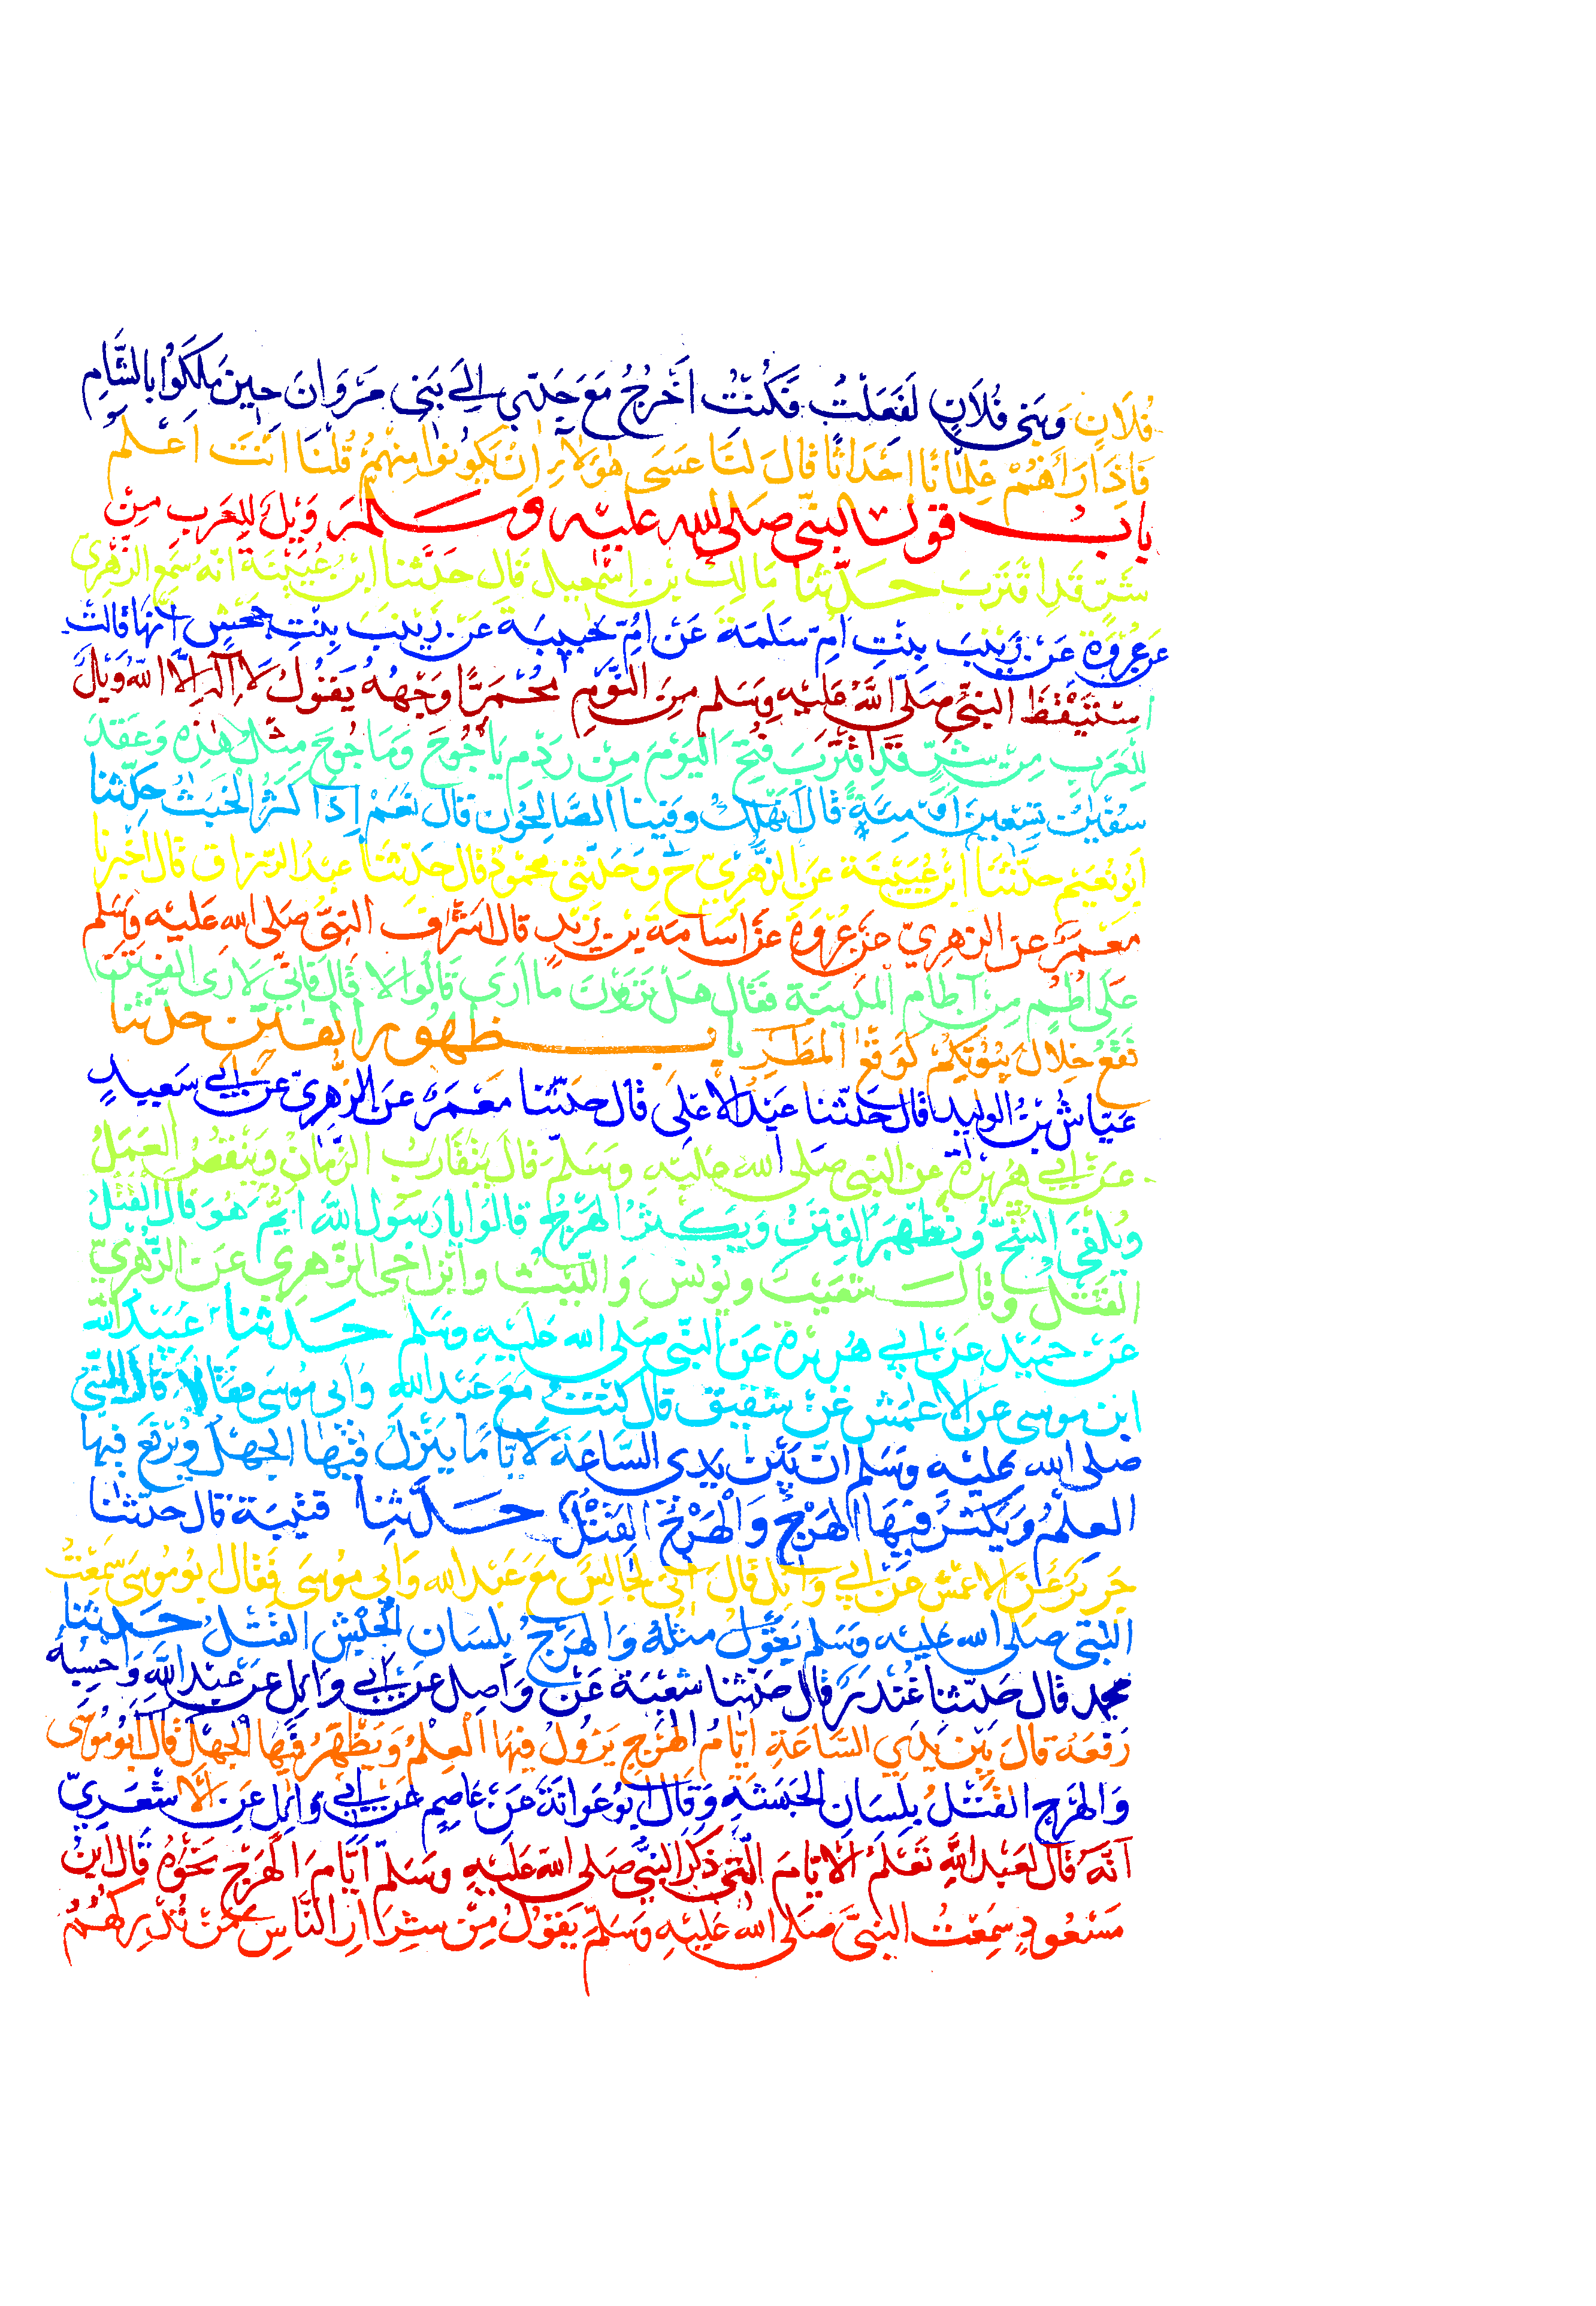 فُلَانٍ وَبَنِي فُلَانٍ لَفَعَلْتُ فَكُنْتُ أَخْرُجُ مَعَ جَدِّي إِلَى بَنِي مَرْوَانَ حِينَ مَلَكُوا بِالشَّامِ
فَإِذَا رَآهُمْ غِلْمَانًا أَحْدَاثًا قَالَ لَنَا عَسَى هَؤُلَاءِ أَنْ يَكُونُوا مِنْهُمْ قُلْنَا أَنْتَ أَعْلَمُ
بَابُ قول النبي صلى الله عليه وسلم وَيْلٌ لِلْعَرَبِ مِنْ
شَرٍّ قَدِ اقْتَرَبَ حدثنا مَالِكُ بْنُ إِسْمٰعِيلَ قَالَ حَدَّثَنَا ابْنُ عُيَيْنَةَ أَنَّهُ سَمِعَ الزُّهْرِيَّ
عَنْ عُرْوَةَ عَنْ زَيْنَبَ بِنْتِ أُمِّ سَلَمَةَ عَنْ أُمِّ حَبِيبَةَ عَنْ زَيْنَبَ بِنْتِ جَحْشٍ أَنَّهَا قَالَتْ
اسْتَيْقَظَ النَّبِيُّ صَلَّى اللَّهُ عَلَيْهِ وَسَلَّمَ مِنَ النَّوْمِ مُحْمَرًّا وَجْهُهُ يَقُولُ لَا إِلَهَ إِلَّا اللَّهُ وَيْلٌ
لِلْعَرَبِ مِنْ شَرٍّ قَدِ اقْتَرَبَ فُتِحَ الْيَوْمَ مِنْ رَدْمِ يَاجُوجَ وَمَاجُوجَ مِثْلُ هٰذِهِ وَعَقَدَ
سُفْيٰنُ تِسْعِينَ أَوْ مِئَةً قَالَ أَنَهْلِكُ وَفِينَا الصَّالِحُونَ قَالَ نَعَمْ إِذَا كَثُرَ الْخَبَثُ حدثنا
أَبُو نُعَيْمٍ حَدَّثَنَا ابْنُ عُيَيْنَةَ عَنِ الزُّهْرِيِّ ح وَحَدَّثَنِي مَحْمُودٌ قَالَ حَدَّثَنَا عَبْدُ الرَّزَّاقِ قَالَ أَخْبَرَنَا
مَعْمَرٌ عَنِ الزُّهْرِيِّ عَنْ عُرْوَةَ عَنْ أُسَامَةَ بْنِ زَيْدٍ قَالَ أَشْرَفَ النَّبِيُّ صَلَى الله عَلَيْهِ وَسَلم
عَلَى أُطُمٍ مِنْ آطَامِ الْمَدِينَةِ فَقَالَ هَلْ تَرَوْنَ مَا أَرَى قَالُوا لَا قَالَ فَإِنِّي لَأَرَى الْفِتَنَ
تَقَعُ خِلَالَ بُيُوتِكُمْ كَوَقْعِ الْمَطَرِ بَابُ ظهور الفتن حدثنا
عَيَّاشُ بْنُ الْوَلِيدِ قَالَ حَدَّثَنَا عَبْدُ الْأَعْلَى قَالَ حَدَّثَنَا مَعْمَرٌ عَنِ الزُّهْرِيِّ عَنْ أَبِي سَعِيدٍ
عَنْ أَبِي هُرَيْرَةَ عَنِ النَّبِي صَلَى الله عَلَيْهِ وَسَلَّمَ قَالَ يَتَقَارَبُ الزَّمَانُ وَيَنْقُصُ الْعَمَلُ
وَيُلْقَى الشُّحُّ وَتَظْهَرُ الْفِتَنُ وَيَكْثُرُ الْهَرْجُ قَالُوا يَا رَسُولَ اللَّهِ أَيُّمَ هُوَ قَالَ الْقَتْلُ
الْقَتْلُ وَقَالَ شُعَيْبٌ وَيُونُسُ وَاللَّيْثُ وَابْنُ أَخِي الزُّهْرِيِّ عَنِ الزُّهْرِيِّ
عَنْ حُمَيْدٍ عَنْ أَبِي هُرَيْرَةَ عَنِ النَّبِّي صَلَى الله عَلَيْهِ وَسَلم حَدَثنا عُبَيْدُ اللَّهِ
ابن موسى عَنِ الْأَعْمَشِ عَنْ شَقِيقٍ قَالَ كُنْتُ مَعَ عَبْدِ اللَّهِ وَأَبِي مُوسَى فَقَالَا قَالَ النَّبِيُّ
صلى الله عليه وَسَلم إِنَّ بَيْنَ يَدَيِ السَّاعَةِ لَأَيَّامًا يَنْزِلُ فِيْهَا الْجَهْلُ وَيُرْفَعُ فِيهَا
الْعِلْمُ وَيَكْثُرُ فِيهَا الْهَرْجُ وَالْهَرْجُ الْقَتْلُ حدثنا قتيبة قَالَ حدثنا
جَرِيرٌ عَنِ الْأَعْمَشِ عَنْ أَبِي وَائِلٍ قَالَ إِنِّي لَجَالِسٌ مَعَ عَبْدِ الله وَأَبِي مُوسَى فَقَالَ أَبُو مُوسَى سَمِعْتُ
النَّبِيَّ صلى الله عليه وَسَلم يَقُولُ مِثْلَهُ وَالْهَرْجُ بِلِسَانِ الْحَبَشِ الْقَتْلُ حَدثنا
محمد قَالَ حَدَّثَنَا غُنْدَرٌ قَالَ حَدَّثَنَا شُعْبَةُ عَنْ وَاصِلٍ عَنْ أَبِي وَائِلٍ عَنْ عَبْدِ اللَّهِ وَأَحْسِبُهُ
رَفَعَهُ قَالَ بَيْنَ يَدَيِ السَّاعَةِ أَيَّامُ الْهَرْجِ يَزُولُ فِيهَا الْعِلْمُ وَيَظْهَرُ فِيهَا الْجَهْلُ قَالَ أَبُو مُوسَى
وَالْهَرْجُ الْقَتْلُ بِلِسَانِ الْحَبَشَةِ وَقَالَ أَبُو عَوَانَةَ عَنْ عَاصِمٍ عَنْ أَبِي وَائِلٍ عَنِ الْأَشْعَرِيِّ
أَنَّهُ قَالَ لِعَبْدِ اللَّهِ تَعْلَمُ الْأَيَّامَ الَّتِي ذَكَرَ النَّبِيُّ صَلَى اللهُ عَلَيْهِ وَسَلَّمَ أَيَّامَ الْهَرْجِ نَحْوَهُ قَالَ ابْنُ
مَسْعُودٍ سَمِعْتُ النَّبِيَّ صَلَى اللهُ عَلَيْهِ وَسَلَّمَ يَقُولُ مِنْ شِرَارِ النَّاسِ مَنْ تُدْرِكُهُمُ